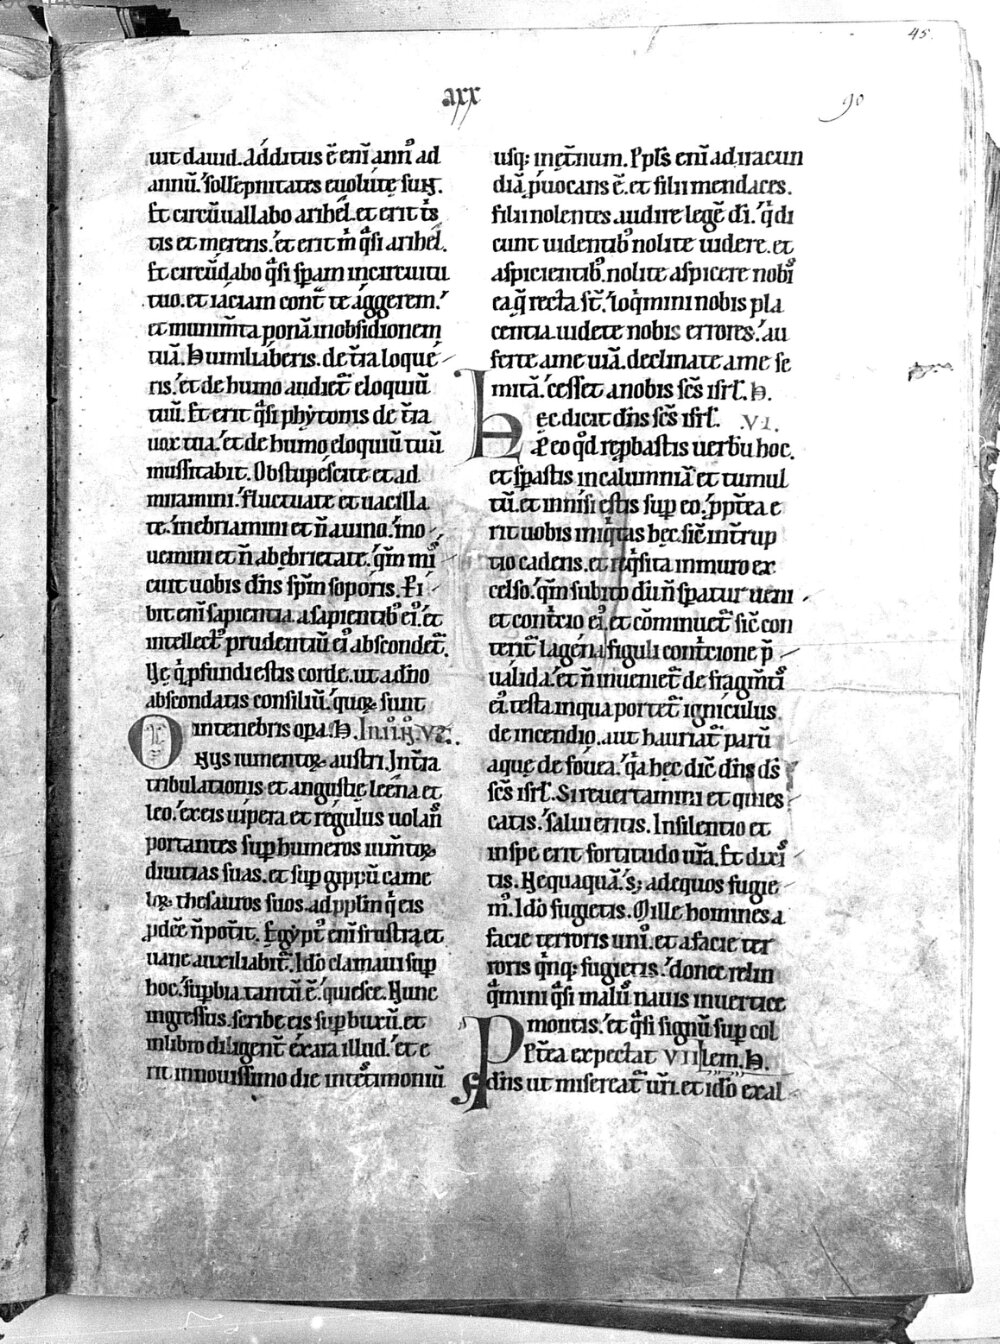 45
axx
90
uit dauid. Additus ē eni᷑ annꝰ ad
annū. sollēpnitates euolute sūt.
Et circūuallabo arihel. et erit tͥs
tis et merens. et erit m̄ q̄si arihel.
Et circūdabo q̄si sp̄am incircuitu
tuo. et iáciam cont̄ te ággerem.
et munim̄ta ponā inobsidionem
tuā. Humiliáberis. de t̄ra loqué
ris. et de humo audiet᷑ eloquiū
tuū. Et erit q̄si phytonis de t̄ra
uox tua. et de humo eloquiū tuū
mussitabit. Obstupéscite et ad
miramini. fluctuate et uacilla
te. inebriamini et n̄ auino. mo
uemini et n̄ abebrietate. qm̄ mi
cuit uobis dn̄s sp̄m sopóris.
bit eni᷑ sapientia. asapientibꝰ eiꝰ. et
intellectꝰ prudentiū eiꝰ abscondet᷑.
Ve q̇ pfundi estis corde. ut adn̄o
abscondatis consiliū. quoꝝ sunt
intenebris opa. H.
Onus iumentoꝝ austri. Int̄ra
tribulationis et angustię leéna et
leo. exeis uípera et régulus uolan̄
portantes suꝑ humeros ium̄toꝝ
diuitias suas. et suꝑ gippū came
loꝝ thesauros suos. adpp̄lm q̇ eis
pdēe n̄ pot̄it. Egyptꝰ eni᷑ frustra et
uane auxiliabit᷑. Ido᷑ clamaui suꝑ
hoc. suꝑbia tantū ē. quiesce. Nunc
ingressus. scribe eis suꝑ buxū. et
inlibro diligent᷑ éxara illud. et e
rit innouissimo die intestimoniū
usqꝫ inet̄num. Ppl̄s eni᷑ ad iracun
diā puocans ē. et filii mendaces.
filii nolentes audire legē dī. q̇ di
cunt uidentibꝰ nolite uidere. et
aspicientibꝰ. nolite aspicere nobis
ea q̄ recta sт̄. loq̇mini nobis pla
centia. uidete nobis errores. au
ferte ame uiā. declinate ame se
mitā. cesset anobis sc̄s isrl̄. H.
Hec dicit dn̄s sc̄s isrl̄. VI.
P̄ eo qd̄ repbastis uerbū hoc.
et spastis incalumniā et tumul
tū. et innisi estis suꝑ eo. ppt̄ea e
rit uobis iniq̇tas hec. sic̄ int̄rup
tio cadens. et req̇sita inmuro ex
celso. qm̄ subito dūn̄ spatur ueni
et cont̄tio eiꝰ. et cōminuet᷑ sic̄ con
terit᷑ lagéna figuli cont̄ritione p̄
uálida. et n̄ inueniet᷑ de fragm̄tꝰ
eiꝰ testa inqua portet᷑ igniculus
de incendio. aut hauriat᷑ parū
aquę de fóuea. q̇a hęc dic̄ dn̄s ds̄
sc̄s isrl̄. Si reuertamini et quies
catis. salui eritis. Insilentio et
inspe erit fortitudo ur̄a. Et dixi
tis. Nequaquā. sꝫ adequos fugie
m̄. Ido᷑ fugietis. Mille homines a
facie terroris uniꝰ. et afacie ter
roris qͥnqꝫ fugietis. donec relin
q̄mini q̄si malū nauis inuertice
montis. et q̄si signū suꝑ col
lem. H.
Ppt̄ea expectat VII
dn̄s ut misereat᷑ ur̄i. et ido᷑ exal